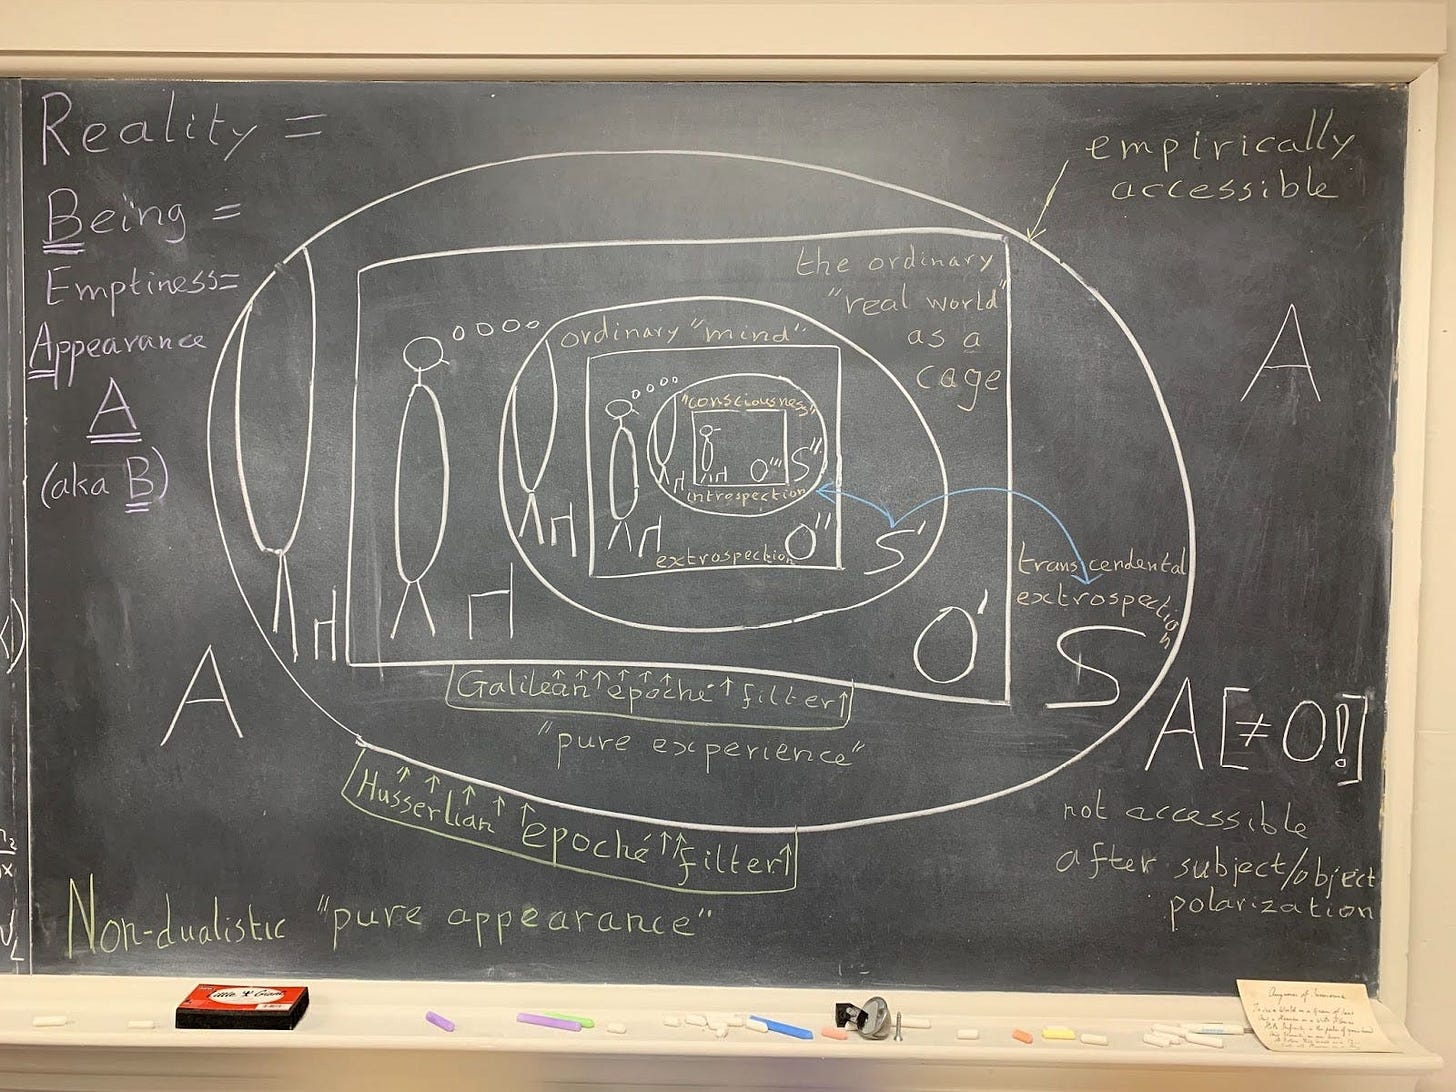 Reality =
Being =
Emptiness=
Appearance
A
(aka B)
empirically
accessible
the ordinary
"real world"
as a
cage
ordinary "mind"
"consciousness"
O''' S''
introspection
extrospection O''
S'
transcendental
extrospection
O'
S
A
A
Galilean epoché filter
"pure experience"
Husserlian epoché filter
A [≠ O!]
not accessible
after subject/object
polarization
Non-dualistic "pure appearance"
Little Giant
Auguries of Innocence